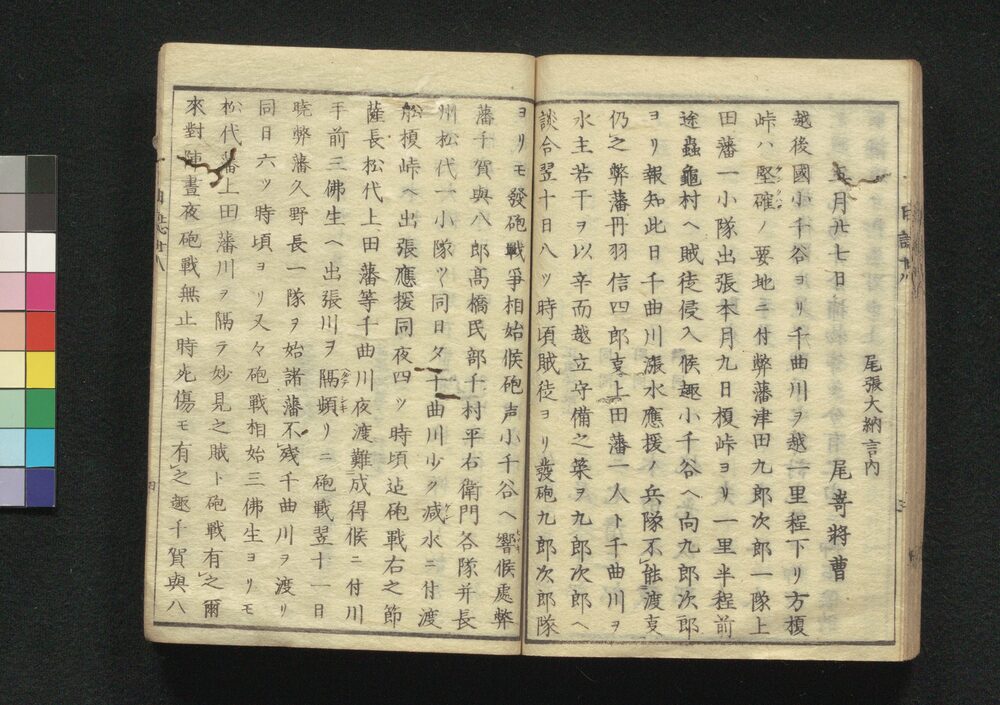 五月廿七日
尾張大納言内
尾嵜將曹
越後國小千谷ヨリ千曲川ヲ越一里程下リ方榎
峠ハ堅確ノ要地ニ付弊藩津田九郎次郎一隊上
田藩一小隊出張本月九日榎峠ヨリ一里半程前
途蟲龜村ヘ賊徒侵入候趣小千谷ヘ向九郎次郎
ヨリ報知此日千曲川漲水應援ノ兵隊不能渡㕝
仍之弊藩丹羽信四郎㕝上田藩一人ト千曲川ヲ
水主若干ヲ以辛而越立守備之策ヲ九郎次郎ヘ
談合翌十日八ツ時頃賊徒ヨリ發砲九郎次郎隊
ヨリモ發砲戰爭相始候砲声小千谷ヘ響候處弊
藩千賀與八郎髙橋民部千村平右衛門各隊并長
州松代一小隊ツヽ同日夕千曲川少ク减水ニ付渡
舩榎峠ヘ出張應援同夜四ツ時頃迠砲戰右之節
薩長松代上田藩等千曲川夜渡難成得候ニ付川
手前三佛生ヘ出張川ヲ隔頻リニ砲戰翌十一日
曉弊藩久野長一隊ヲ始諸藩不殘千曲川ヲ渡リ
同日六ツ時頃ヨリ又々砲戰相始三佛生ヨリモ
松代藩上田藩川ヲ隔ヲ妙見之賊ト砲戰有之爾
來對陣晝夜砲戰無止時死傷モ有之趣千賀與八